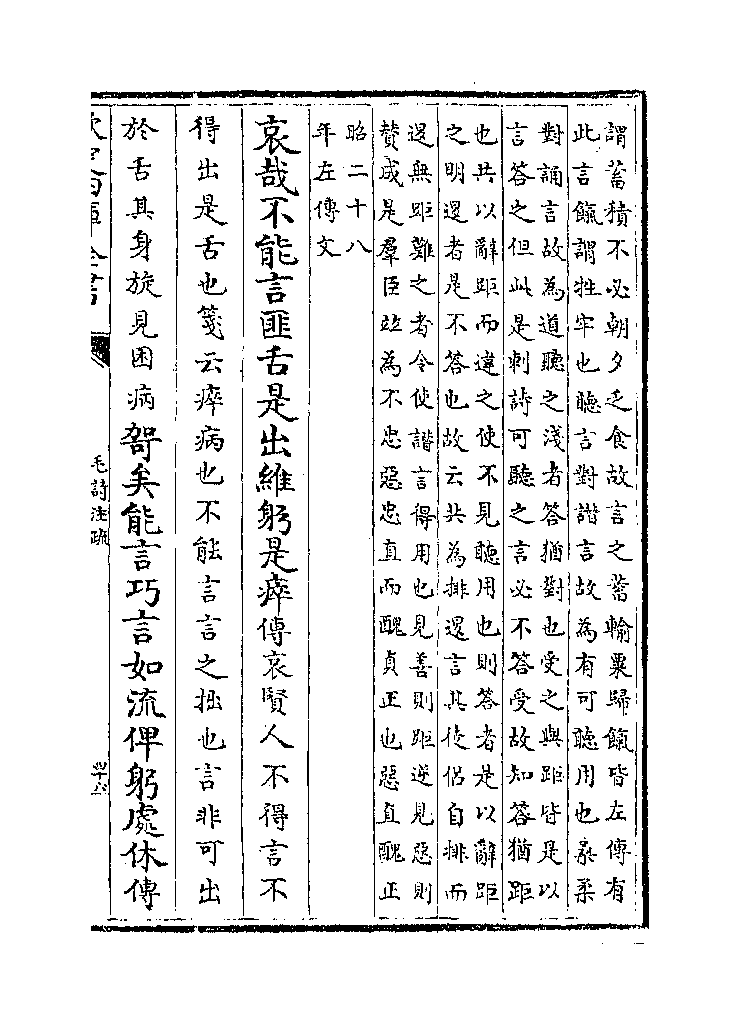 謂蓄積不必朝夕乏食故言之蓄輸粟歸餼皆左傳有
此言餼謂牲牢也聽言對譖言故為有可聽用也桑柔
對誦言故為道聽之淺者答猶對也受之與距皆是以
言答之但此是刺詩可聽之言必不答受故知答猶距
也共以辭距而違之使不見聽用也則答者是以辭距
之明還者是不答也故云共為排還言其使侶自排而
還無距難之者令使譖言得用也見善則距逆見惡則
賛成是羣臣竝為不忠惡忠直而醜貞正也惡直醜正
昭二十八
年左傳文
哀哉不能言匪舌是出維躬是瘁傳哀賢人不得言不
得出是舌也箋云瘁病也不能言言之拙也言非可出
於舌其身旋見困病哿矣能言巧言如流俾躬處休傳
毛詩注疏